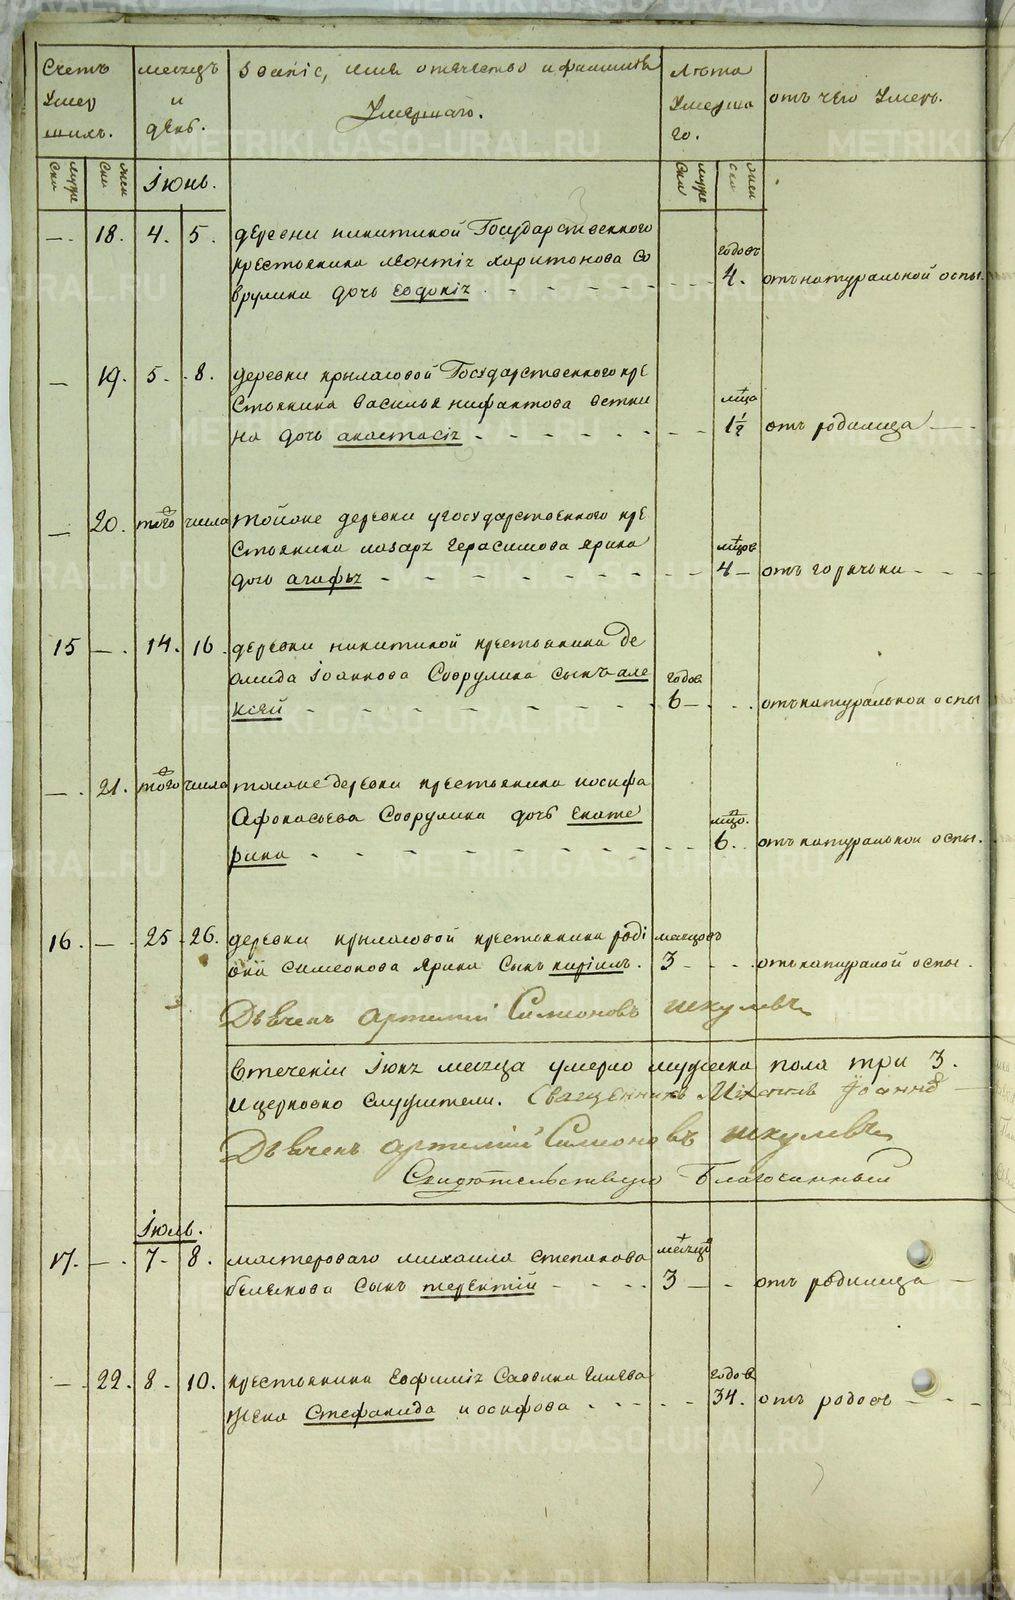 Счетъ
Умер
шихъ.
мѣсяцъ
и
день.
званіе, имя отечество и фамилія
Умершаго.
Лѣта
Умерша
го.
отъ чего Умеръ.
муже
ски
жен
ски
Іюнь.
муже
ски
жен
ски
—. 18. 4. 5. деревни никитиной Государственнаго
крестьянина леонтія харитонова Со
врулина дочь евдокія годовъ 4. отъ натуральной оспы.
— 19. 5. 8. деревни крылаговой Государственнаго кре
стьянина василья нифантова веткин
на дочь анастасія мца 1½ отъ родимца
— 20. того числа тойоже деревни государственнаго кре
стьянина лазаря герасимова ярина
дочь агафья мцов 4 отъ горячьки
15 —. 14. 16. деревни никитиной крестьянина де
омида Іоаннова Соврулина сынъ але
ксей годов 6 отъ натуральной оспы
—. 21. того числа тоиоже деревни крестьянина иосифа
Афонасьева Соврулина дочь екате
рина мцо. 6. отъ натуральной оспы.
16. —. 25. 26. деревни крылаговой крестьянина роді
она симеонова Ярина сынъ кирилъ. месяцовъ 3 отъ натуралой оспы.
Дьячекъ артемій Симионовъ
Втеченіи Іюня месяца умерло мужеска пола три 3.
и церковно служители. Священникъ
Дьячекъ артемій Симионовъ
Свидѣтельствую Благочинный
Іюль.
17. —. 7. 8. мастероваго михаила степанова
белякова сынъ терентій мѣсяцъ 3 отъ родимца
—. 22. 8. 10. крестьянина Ефимія Саввина
жена Стефанида иосифова годов 34. отъ родовъ
METRIKI.GASO-URAL.RU